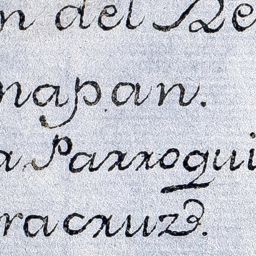 n del Re
napan.
a Parroqui
racruz.